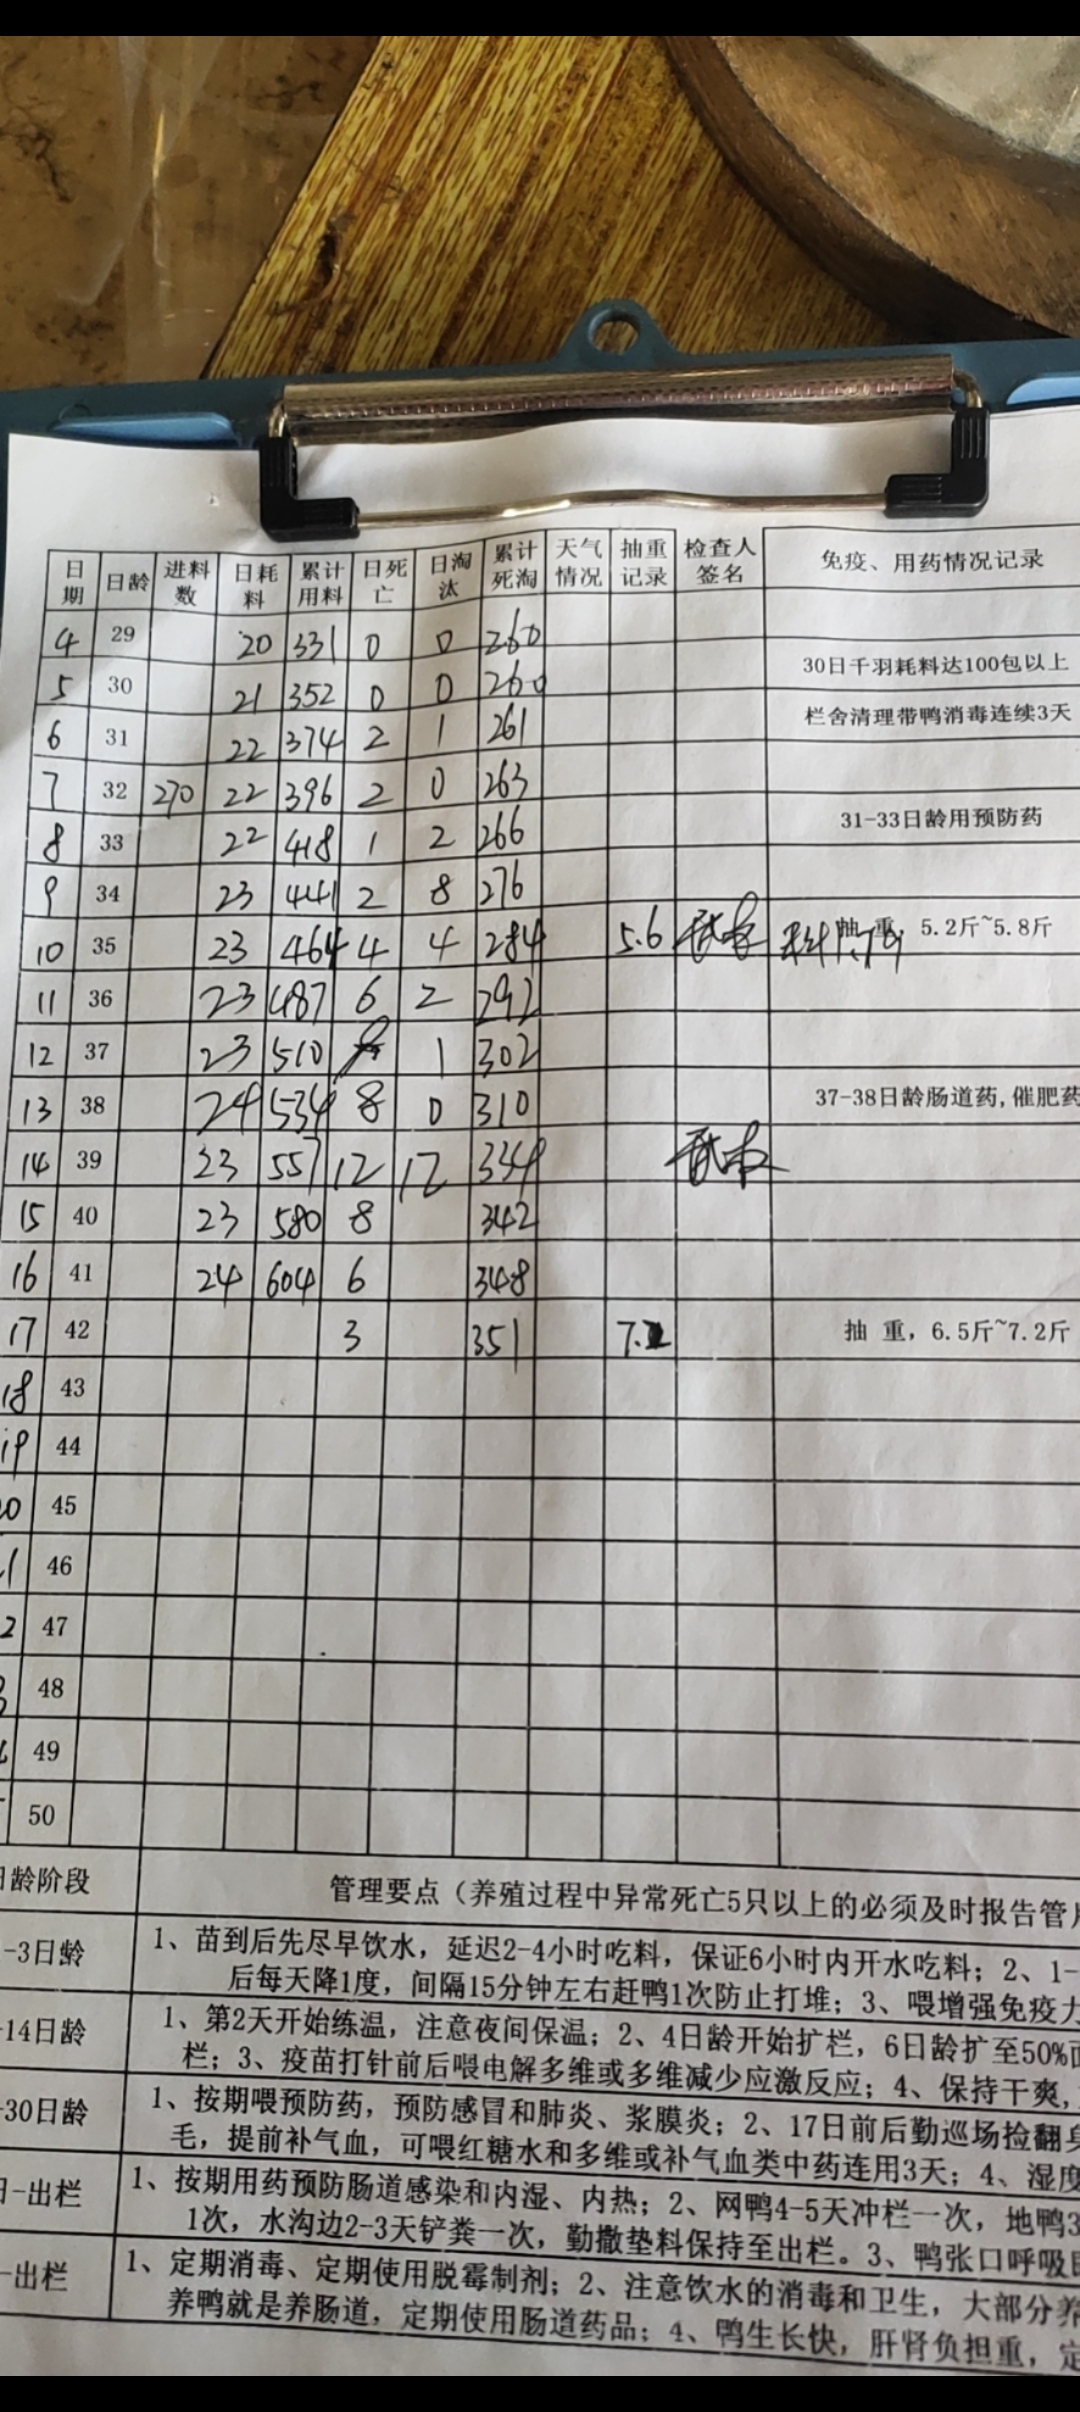 日期 日龄 进料数 日耗料 累计用料 日死亡 日淘汰 累计死淘 天气情况 抽重记录 检查人签名 免疫、用药情况记录
4 29 20 331 0 0 260
5 30 21 352 0 0 260 30日千羽耗料达100包以上
6 31 22 374 2 1 261 栏舍清理带鸭消毒连续3天
7 32 270 22 396 2 0 263
8 33 22 418 1 2 266 31-33日龄用预防药
9 34 23 441 2 8 276
10 35 23 464 4 4 284 5.6 抽 重，5.2斤~5.8斤
11 36 23 487 6 2 292
12 37 23 510 1 302
13 38 24 534 8 0 310 37-38日龄肠道药,催肥药
14 39 23 557 12 12 334
15 40 23 580 8 342
16 41 24 604 6 348
17 42 3 351 7.2 抽 重，6.5斤~7.2斤
18 43
19 44
20 45
46
2 47
48
49
50
日龄阶段 管理要点（养殖过程中异常死亡5只以上的必须及时报告管
-3日龄 1、苗到后先尽早饮水，延迟2-4小时吃料，保证6小时内开水吃料；2、1-
后每天降1度，间隔15分钟左右赶鸭1次防止打堆；3、喂增强免疫力
-14日龄 1、第2天开始练温，注意夜间保温；2、4日龄开始扩栏，6日龄扩至50%面
栏；3、疫苗打针前后喂电解多维或多维减少应激反应；4、保持干爽，
-30日龄 1、按期喂预防药，预防感冒和肺炎、浆膜炎；2、17日前后勤巡场捡翻身
毛，提前补气血，可喂红糖水和多维或补气血类中药连用3天；4、湿度
日-出栏 1、按期用药预防肠道感染和内湿、内热；2、网鸭4-5天冲栏一次，地鸭3
1次，水沟边2-3天铲粪一次，勤撒垫料保持至出栏。3、鸭张口呼吸
-出栏 1、定期消毒、定期使用脱霉制剂；2、注意饮水的消毒和卫生，大部分养
养鸭就是养肠道，定期使用肠道药品；4、鸭生长快，肝肾负担重，定